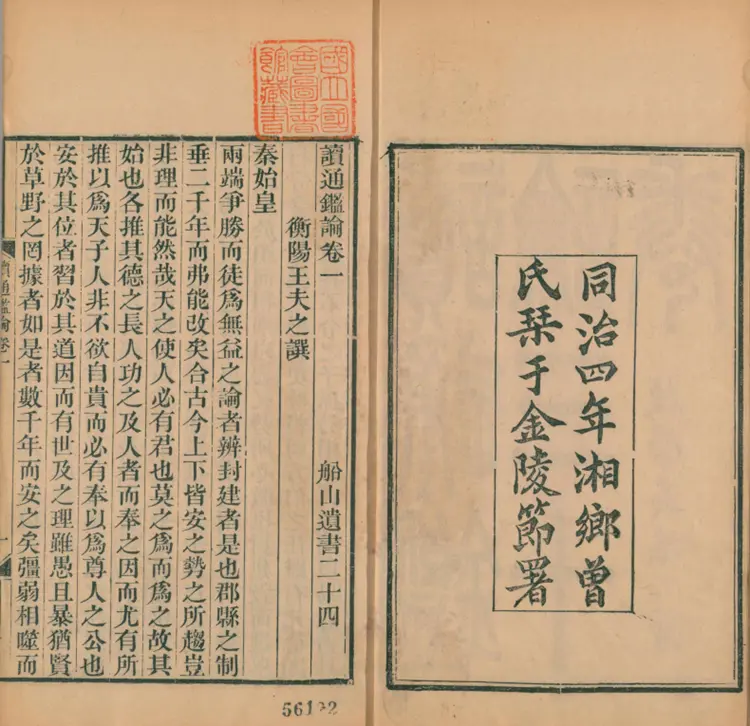 同治四年湘鄉曾
氏栞于金陵節署
國立國
會圖書
館藏書
讀通鑑論卷一
船山遺書二十四
衡陽王夫之譔
秦始皇
兩端爭勝而徒爲無益之論者辨封建者是也郡縣之制
垂二千年而弗能改矣合古今上下皆安之勢之所趨豈
非理而能然哉天之使人必有君也莫之爲而爲之故其
始也各推其德之長人功之及人者而奉之因而尤有所
推以爲天子人非不欲自貴而必有奉以爲尊人之公也
安於其位者習於其道因而有世及之理雖愚且暴猶賢
於草野之罔據者如是者數千年而安之矣彊弱相噬而
讀通鑑論卷一
一